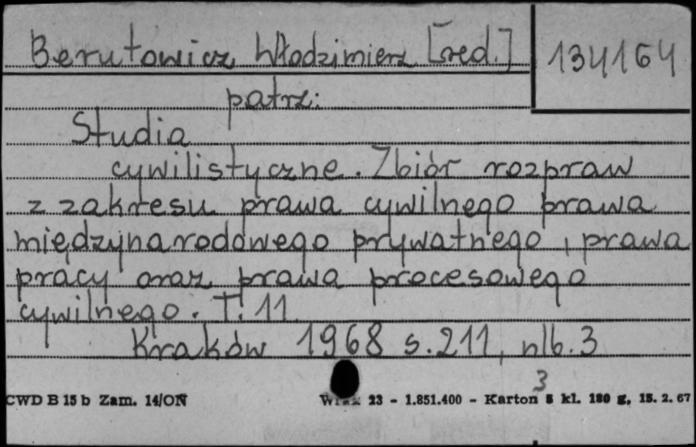 Berutowicz Włodzimierz [red.]
134164
patrz:
Studia
cywilistyczne. Zbiór rozpraw
z zakresu prawa cywilnego prawa
międzynarodowego prywatnego, prawa
pracy oraz prawa procesowego
cywilnego. T. 11
Kraków 1968 s. 211, nlb. 3
3
CWD B 15 b Zam. 14/ON 23 - 1.851.400 - Karton kl. 180 g, 15. 2. 67